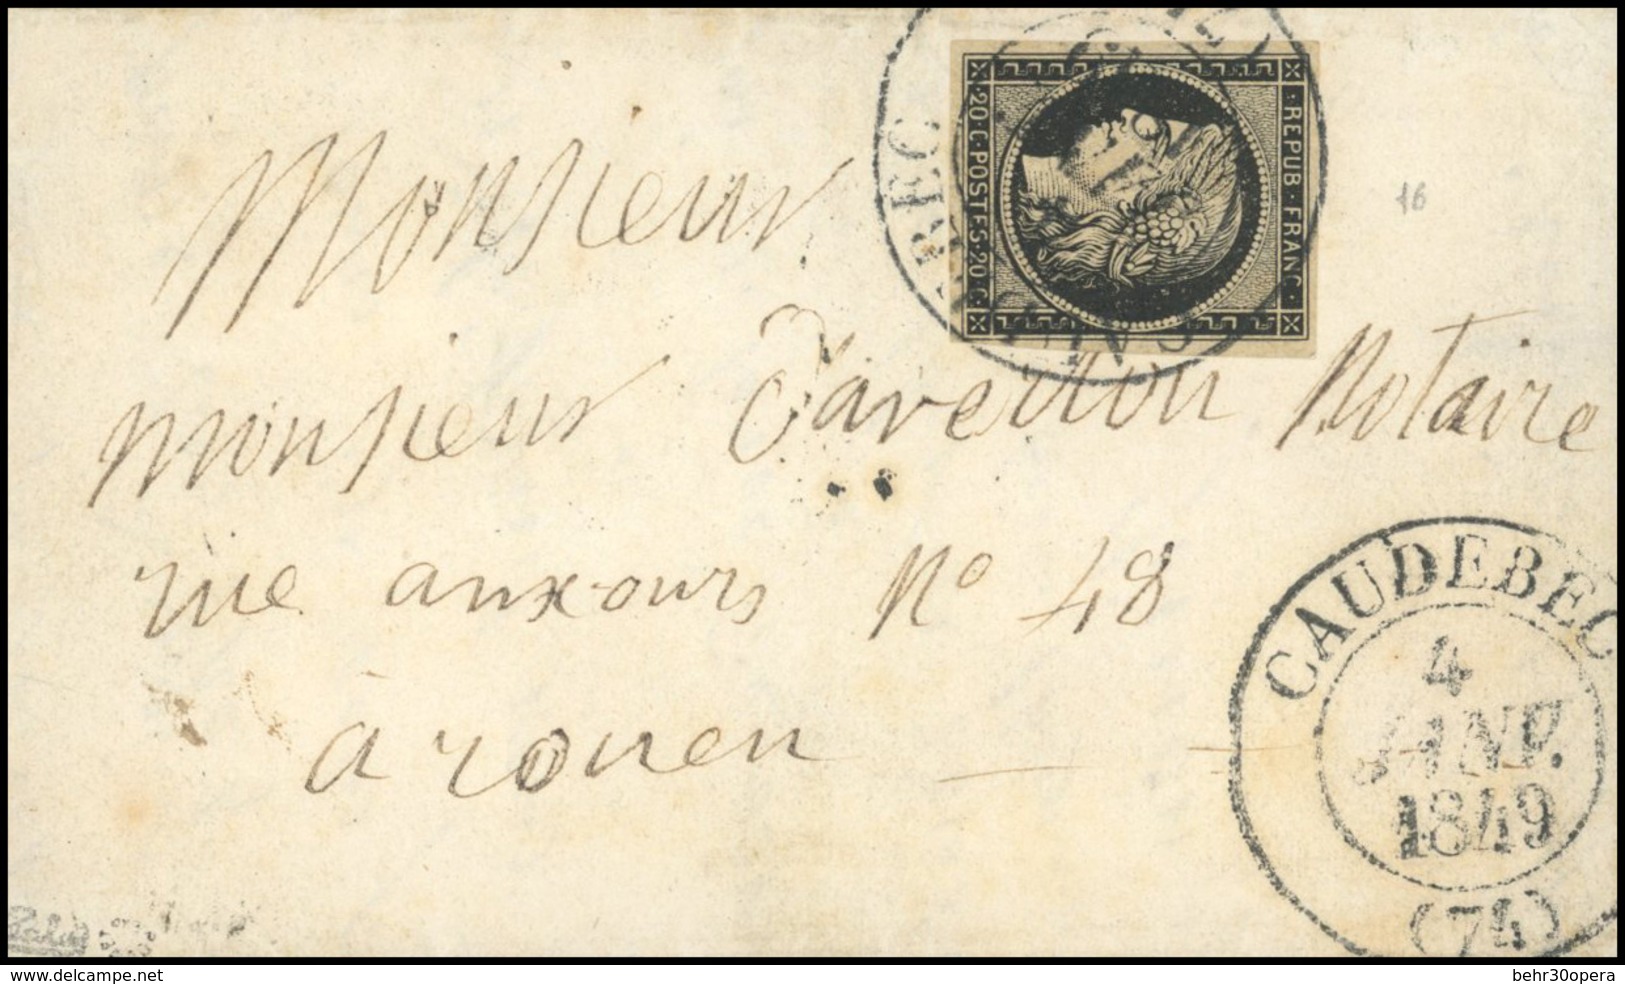 REPUB·FRANC·
20·C·POSTES·20·C
16
Monsieur
monsieur Notaire
rue aux ours No 48
a rouen
CAUDEBEC
4
JANV.
1849
(74)
www.delcampe.net
behr30opera